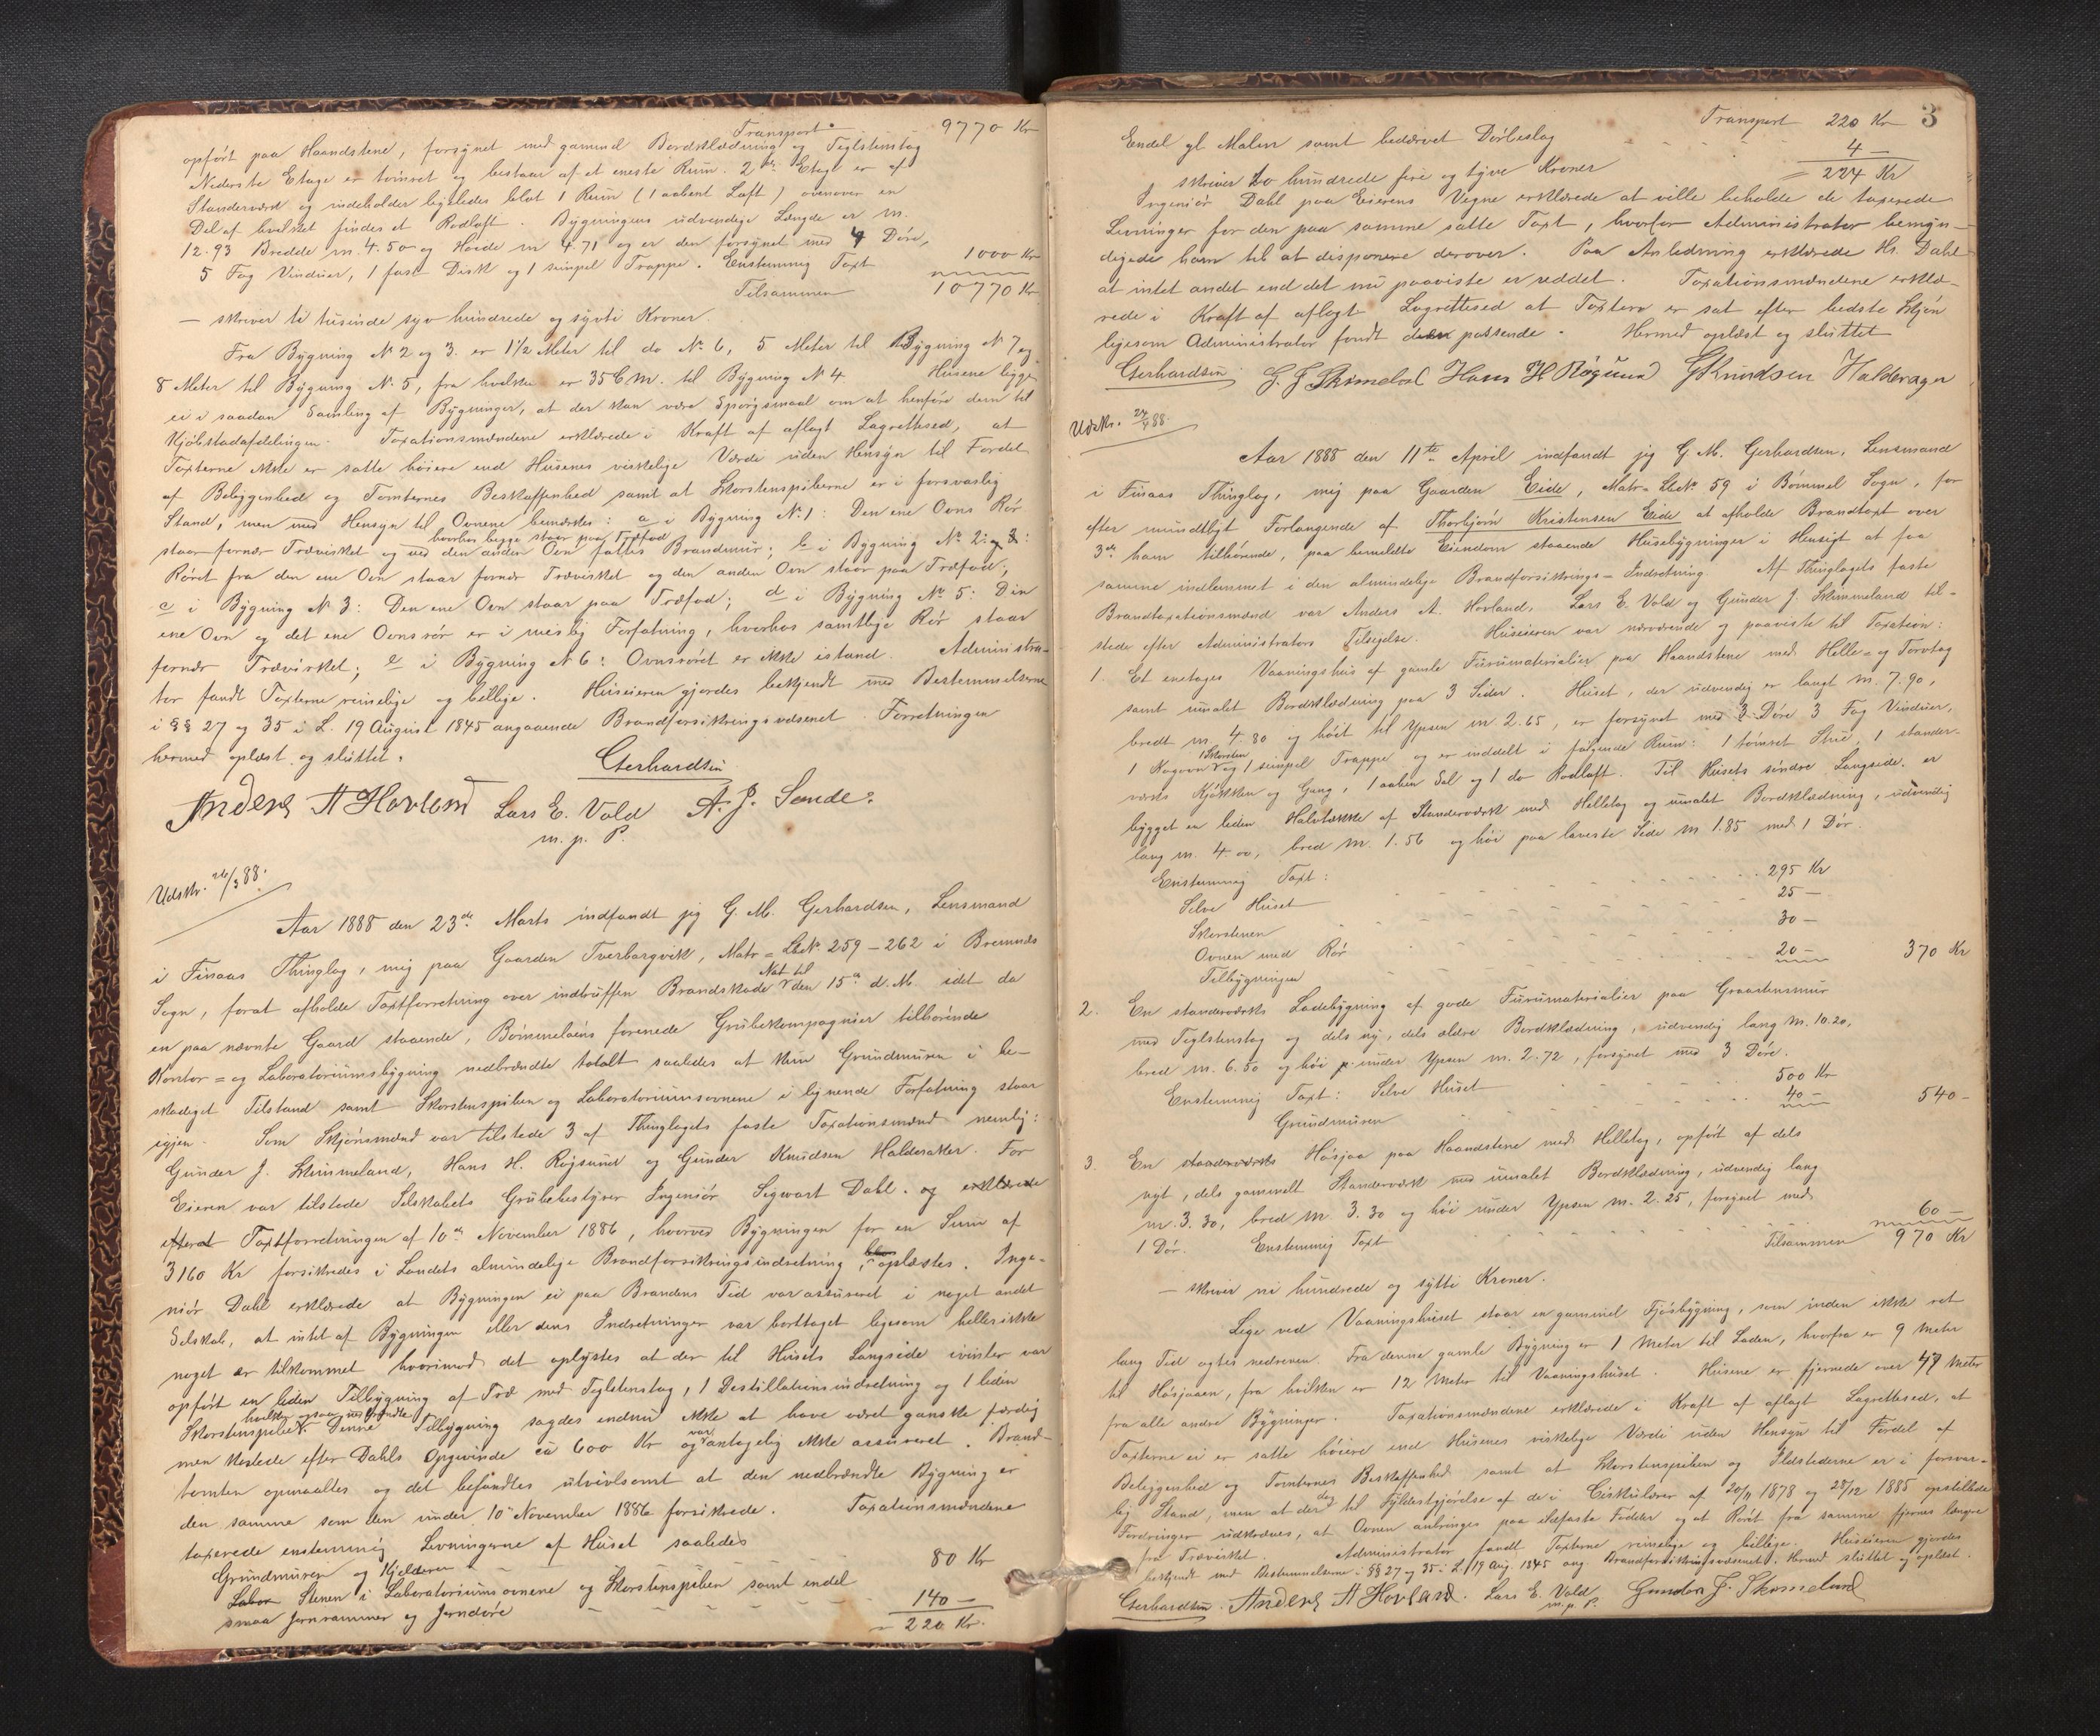 Transport 9770 Kr
opført paa Haandstene, forsynet med gammel Bordklædning og Teglstenstag
Nederste Etage er tømret og bestaar af et eneste Rum. 2den Etage er af
Standerværk og indeholder ligeledes blot 1 Rum (1 aabent Loft) ovenover en
Del af hvilket findes et Rodloft. Bygningens udvendige Længde er m.
12.93 Bredde m. 4.50 og Høide m 4.71 og er den forsynet med 4 Døre,
5 Fag Vinduer, 1 fast Disk og 1 simpel Trappe. Enstemmig Taxt 1000 Kr
Tilsammen 10770 Kr
— skriver ti tusinde syv hundrede og sytti Kroner.
Fra Bygning No 2 og 3. er 1 1/2 Meter til do No 6, 5 Meter til Bygning No 7 og
8 Meter til Bygning No. 5, fra hvilken er 35 m. til Bygning No 4 Husene ligge
ei i saadan Samling af Bygninger, at der kan være Spørgsmaal om at henføre dem til
Kjøbstadafdelingen. Taxationsmændene erklærede i Kraft af aflagt Lagrettesed, at
Taxterne ikke er satte høiere end Husenes virkelige Værde uden Hensyn til Fordel
af Beliggenhed og Tomternes Beskaffenhed samt at Skorstenspiberne er i forsvarlig
Stand, men med Hensyn til Ovnene bemærkes: a i Bygning No 1: Den ene Ovns Rør
hvorhos begge staar paa Træfod
staar fornær Trævirket og ved den anden Ovn fattes Brandmur; b i Bygning No 2:
Røret fra den ene Ovn staar fornær Trævirket og den anden Ovn staar paa Træfod;
c i Bygning No 3: Den ene Ovn staar paa Træfod; d i Bygning No 5: Din
ene Ovn og det ene Ovnsrør er i mislig Forfatning, hvorhos samtlige Rør staar
fornær Trævirket; e i Bygning No 6: Ovnsrøret er ikke istand. Administra-
tor fandt Taxterne rimelige og billige. Huseieren gjordes bekjendt med Bestemmelserne
i §§ 27 og 35 i L. 19 August 1845 angaaende Brandforsikringsvæsenet. Forretningen
hermed oplæst og sluttet.
Gerhardsen
Anders A Hovland Lars E. Vold A. J. Sende.
m. p. P.
Udskr. 26/3 88.
Aar 1888 den 23de Marts indfandt jeg G. M. Gerhardsen, Lensmand
i Finaas Thinglag, mig paa Gaarden Tverborgvik, Matr = LNo. 259 - 262 i Bremnæs
Sogn, forat afholde Taxtforretning over indtruffen Brandskade Nat til den 15de d. M. idet da
en paa nævnte Gaard staaende, Bømmeløens forenede Grubekompagnier tilhørende
Kontor = og Laboratoriumsbygning nedbrændte totalt saaledes at kun Grundmuren i be-
skadiget Tilstand samt Skorstenspiben og Laboratoriumsovnene i lignende Forfatning staar
igjen. Som Skjønsmænd var tilstede 3 af Thinglagets faste Taxationsmænd nemlig:
Gunder J. Skimmeland, Hans H. Røgsund og Gunder Knudsen Halderaker. For
Eieren var tilstede Selskabets Grubebestyrer Ingeniør Segwart Dahl. og erklærede
efterat Taxtforretningen af 10de November 1886, hvorved Bygningen for en Sum af
3160 Kr forsikredes i Landets almindelige Brandforsikringsindretning, oplæstes. Inge-
niør Dahl erklærede at Bygningen ei paa Brandens Tid var assureret i noget andet
Selskab, at intet af Bygningen eller dens Indretninger var borttaget ligesom heller ikke
noget er tilkommet hvorimod det oplystes at der til Husets Langside ivinter var
opført en liden Tilbygning af Træ med Teglstenstag, 1 Destillationsindretning og 1 liden
hvilke ogsaa nedbrændte
Skorstenspibe. Denne Tilbygning sagdes endnu ikke at have været ganske færdig
men kostede efter Dahls Opgivende ca 600 Kr og var antagelig ikke assureret. Brand-
tomten opmaaltes og det befandtes utvivlsomt at den nedbrændte Bygning er
den samme som den under 10de November 1886 forsikrede. Taxationsmændene
taxerede enstemmig Levningerne af Huset saaledes
Grundmuren og Kjelderen 80 Kr
Labor Stenen i Laboratoriumsovnene og Skorstenspiben samt endel
smaa Jernrammer og Jerndøre 140 —
= 220 Kr.
3
Transport 220 Kr
Endel gl Malm samt bedærvet Dørbeslag 4 —
= 224 Kr
skriver to hundrede fire og tyve Kroner
Ingeniør Dahl paa Eierens Vegne erklærede at ville beholde de taxerede
Levninger for den paa samme satte Taxt, hvorfor Administrator bemyn-
digede ham til at disponere derover. Paa Anledning erklærede Hr. Dahl
at intet andet end det nu paaviste er reddet. Taxationsmændene erklæ-
rede i Kraft af aflagt Lagrettesed at Taxten er sat efter bedste Skjøn
ligesom Administrator fandt den passende. Hermed oplæst og sluttet
Gerhardsen G. J. Skimeland Hans H Røgsund G Knudsen Halderager
Udskr. 24/4 88.
Aar 1888 den 11te April indfandt jeg G. M. Gerhardsen, Lensmand
i Finaas Thinglag, mig paa Gaarden Eide, Matr = LNo. 59 i Bømmel Sogn, for
efter mundtligt Forlangende af Thorbjørn Kristensen Eide at afholde Brandtaxt over
3de ham tilhørende, paa bemeldte Eiendom staaende Husebygninger i Hensigt at faa
samme indlemmet i den almindelige Brandforsikrings = Indretning Af Thinglagets faste
Brandtaxationsmænd var Anders A. Hovland, Lars E. Vold og Gunder J. Skimmeland til-
stede efter Administrators Tilsigelse. Huseieren var nærværende og paaviste til Taxation:
1. Et enetages Vaaningshus af gamle Furumaterialier paa Haandstene med Helle = og Torvtag
samt umalet Bordklædning paa 3 Sider. Huset, der udvendig er langt m. 7.90,
bredt m. 4.80 og høit til Ypsen m 2.65, er forsynet med 3 Døre 3 Fag Vinduer,
1 Skorsten
1 Kogeovn og 1 simpel Trappe og er inddelt i følgende Rum: 1 tømret Stue, 1 stander-
værks Kjøkken og Gang, 1 aaben Sal og 1 do Rodloft. Til Husets søndre Langside er
bygget en liden Halvtække af Standerværk med Helletag og umalet Bordklædning, udvendig
lang m. 4.00, bred m. 1.56 og høi paa laveste Side m 1.85 med 1 Dør.
Enstemmig Taxt:
Selve Huset 295 Kr
Skorstenen 25 —
Ovnen med Rør 30 —
Tilbygningen 20 — 370 Kr
2. En standerværks Ladebygning af gode Furumaterialier paa Graastensmur
med Teglstenstag og dels ny, dels ældre Bordklædning, udvendig lang m. 10.20,
bred m. 6.50 og høi under Ypsen m. 2.72, forsynet med 3 Døre.
Enstemmig Taxt: Selve Huset 500 Kr
Grundmuren 40 — 540 —
3. En standerværks Høsjaa paa Haandstene med Helletag, opført af dels
nyt, dels gammelt Standerværk med umalet Bordklædning, udvendig lang
m. 3.30, bred m 3.30 og høi under Ypsen m. 2.25, forsynet med
1 Dør. Enstemmig Taxt 60 —
Tilsammen 970 Kr
— skriver ni hundrede og sytti Kroner.
Lige ved Vaaningshuset staar en gammel Fjøsbygning, som inden ikke ret
lang Tid agtes nedreven. Fra denne gamle Bygning er 1 Meter til Laden, hvorfra er 9 Meter
til Høsjaaen, fra hvilken er 12 Meter til Vaaningshuset. Husene er fjernede over 47 Meter
fra alle andre Bygninger. Taxationsmændene erklærede i Kraft af aflagt Lagrettesed, at
Taxterne ei er satte høiere end Husenes virkelige Værdi uden Hensyn til Fordel af
Beliggenhed og Tomternes Beskaffenhed samt at Skorstenspiben og Ildstederne er i forsvar-
lig Stand, men at der til Fyldestgjørelse af de i Cirkulærer af 20/11 1878 og 28/12 1885 opstillede
Fordringer udkræves, at Ovnen anbringes paa ildfaste Fødder og at Røret fra samme fjernes længre
fra Trævirket. Administrator fandt Taxterne rimelige og billige. Huseieren gjordes
bekjendt med Bestemmelserne i §§ 27 og 35 i L. 19 Aug. 1845 ang. Brandforsikringsvæsenet. Hermed sluttet og oplæst.
Gerhardsen. Anders A Hovland. Lars E. Vold Gunder J. Skimeland
m. p. P.